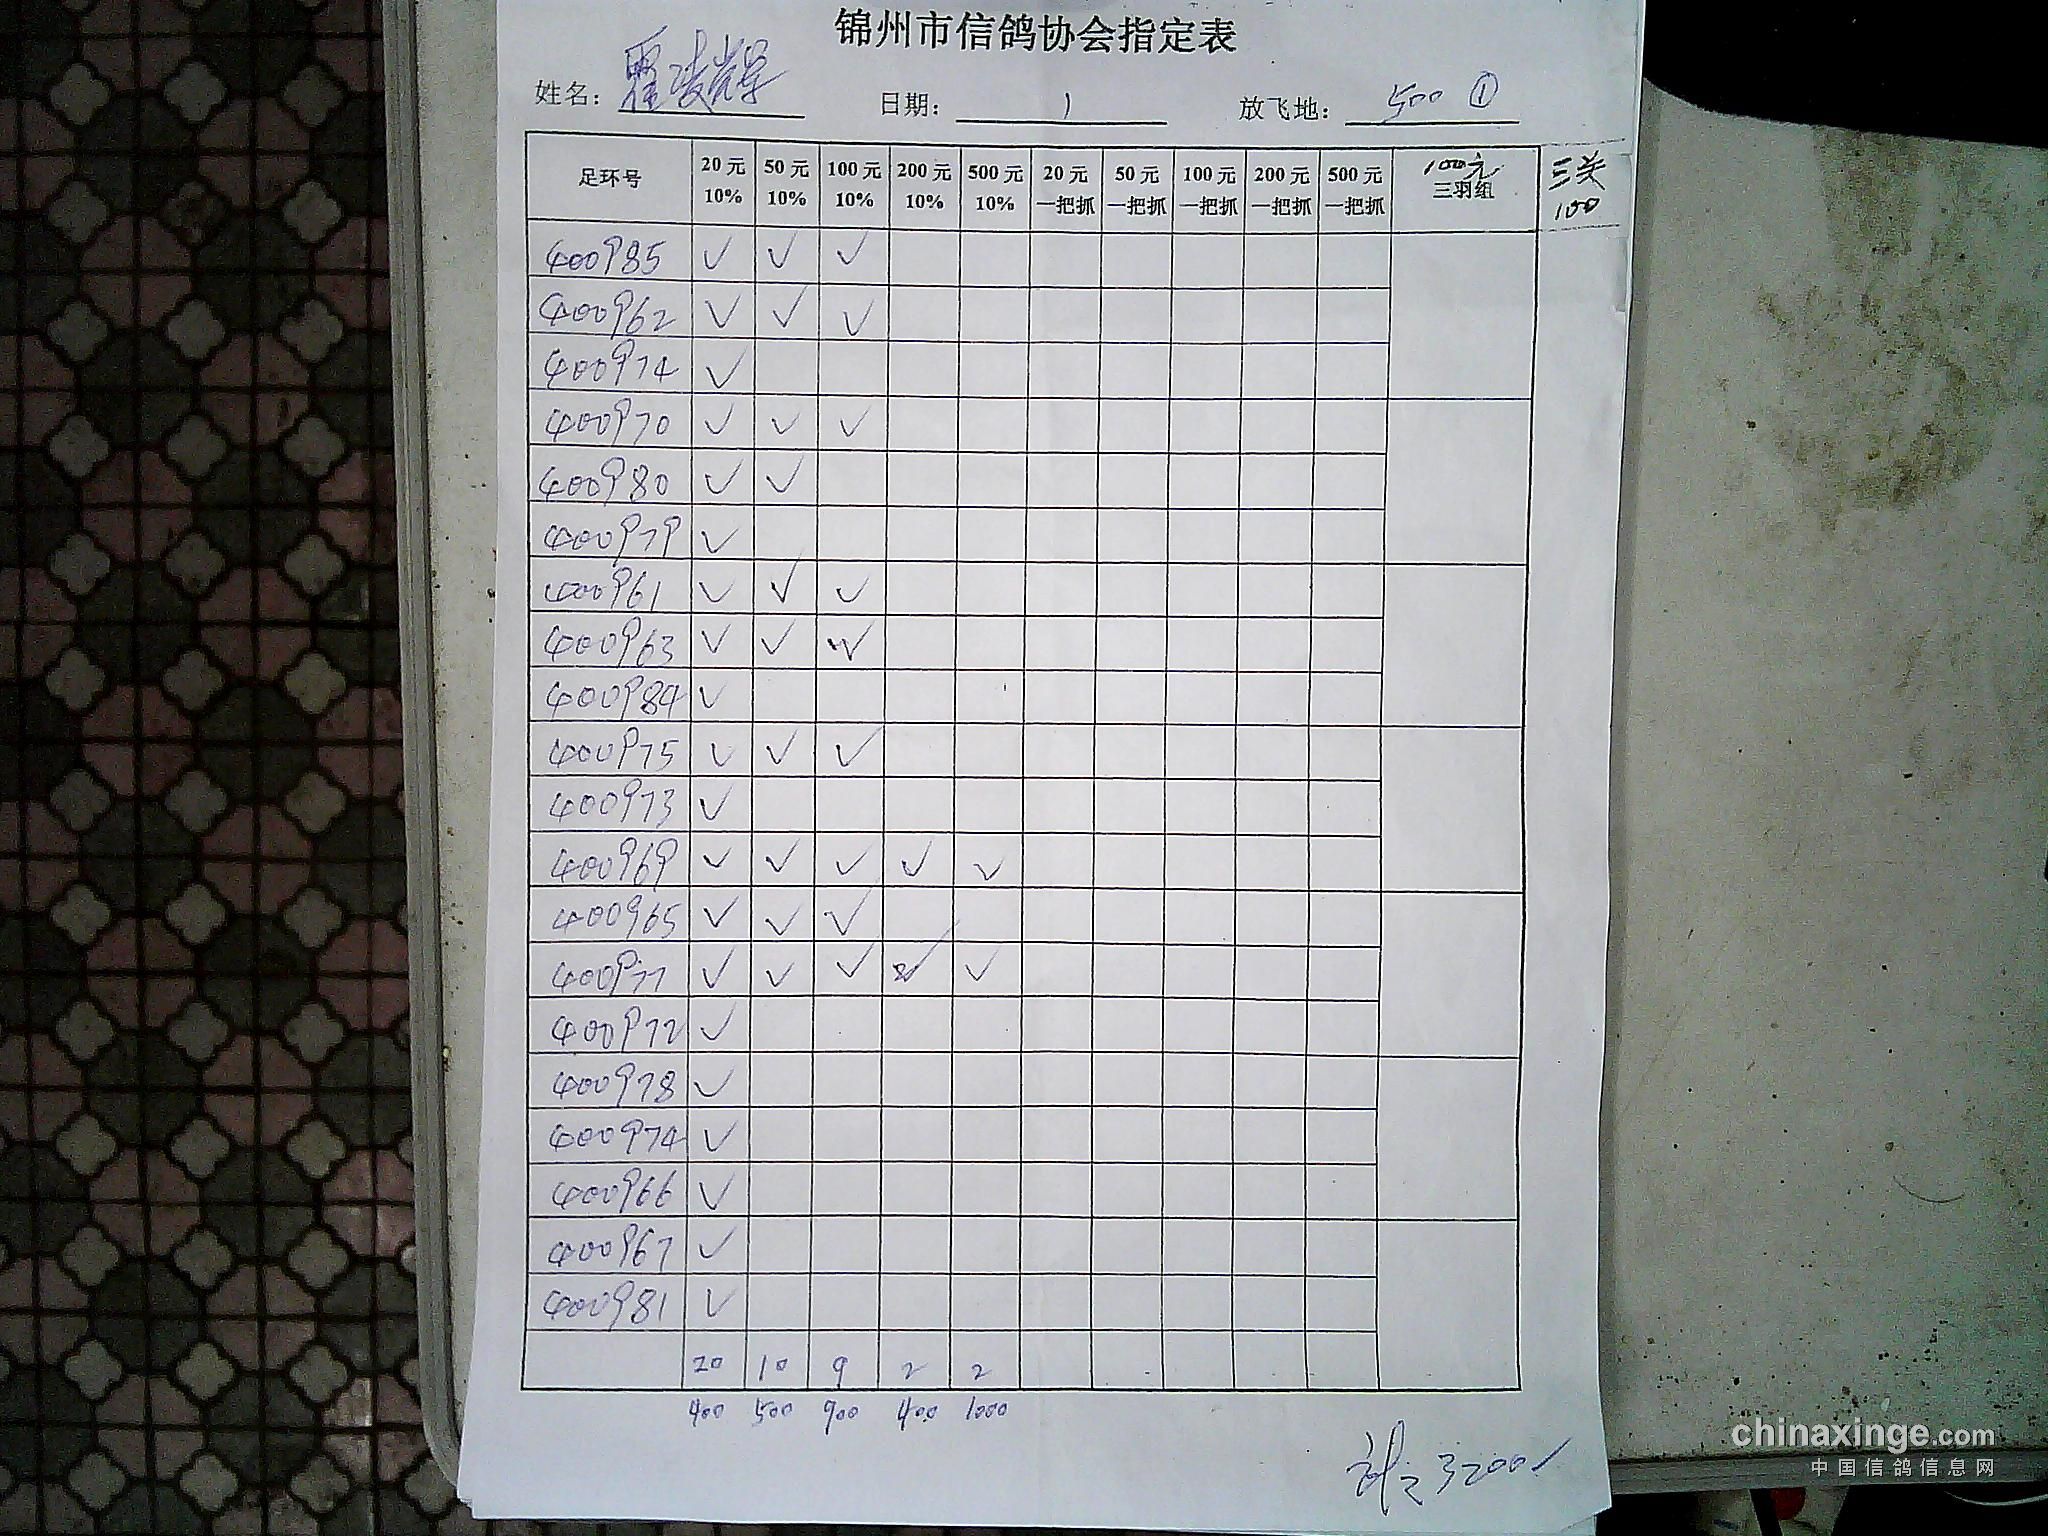 锦州市信鸽协会指定表
姓名： 霍凌辉 日期： 1 放飞地： 500 ①
足环号 20元 10% 50元 10% 100元 10% 200元 10% 500元 10% 20元 一把抓 50元 一把抓 100元 一把抓 200元 一把抓 500元 一把抓 100元 三羽组 三关 100
400985 ✓ ✓ ✓
400962 ✓ ✓ ✓
400974 ✓
400970 ✓ ✓ ✓
400980 ✓ ✓
400979 ✓
400961 ✓ ✓ ✓
400963 ✓ ✓ ✓
400984 ✓
400975 ✓ ✓ ✓
400973 ✓
400969 ✓ ✓ ✓ ✓ ✓
400965 ✓ ✓ ✓
400977 ✓ ✓ ✓ ✓ ✓
400972 ✓
400978 ✓
400974 ✓
400966 ✓
400967 ✓
400981 ✓
20 10 9 2 2
400 500 900 400 1000
计: 3200 ✓
chinaxinge.com
中国信鸽信息网